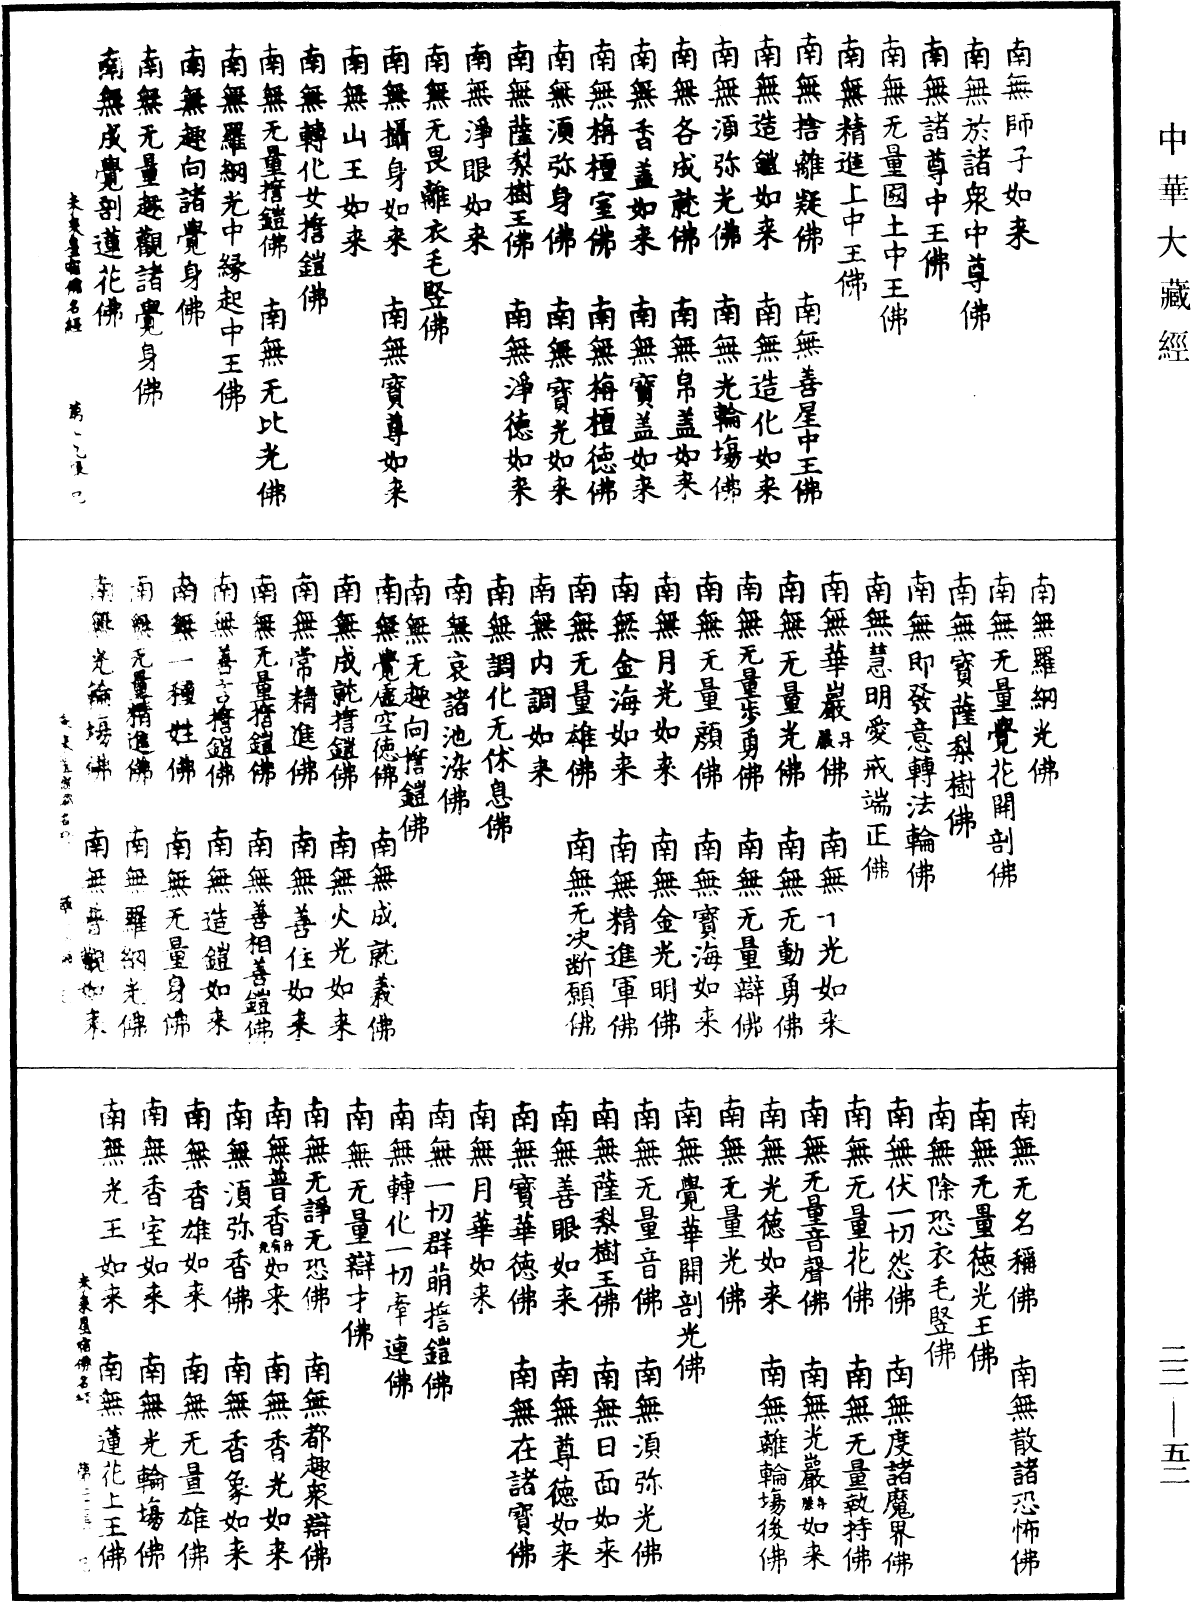 中華大藏經
南無師子如来
南無於諸衆中尊佛
南無諸尊中王佛
南無无量國土中王佛
南無精進上中王佛
南無捨離疑佛 南無善星中王佛
南無造鎧如来 南無造化如来
南無須弥光佛 南無光輪塲佛
南無各成就佛 南無帛盖如来
南無香盖如来 南無寶盖如来
南無栴檀室佛 南無栴檀德佛
南無須弥身佛 南無寶光如来
南無薩梨樹王佛 南無淨德如来
南無淨眼如来
南無无畏離衣毛竪佛
南無攝身如来 南無寶尊如来
南無山王如来
南無轉化女擔鎧佛
南無无量擔鎧佛 南無无比光佛
南無羅網光中緣起中王佛
南無趣向諸覺身佛
南無无量趣觀諸覺身佛
南無成覺剖蓮花佛
未来星宿佛名經
南無羅網光佛
南無无量覺花開剖佛
南無寶薩梨樹佛
南無即發意轉法輪佛
南無慧明愛戒端正佛
南無華巖丹嚴佛 南無光如来
南無无量光佛 南無无動勇佛
南無无量步勇佛 南無无量辯佛
南無无量顏佛 南無寶海如来
南無月光如来 南無金光明佛
南無金海如来 南無精進軍佛
南無无量雄佛 南無无决断願佛
南無内調如来
南無調化无伏息佛
南無哀諸池染佛
南無无趣向擔鎧佛
南無覺虛空德佛 南無成就義佛
南無成就擔鎧佛 南無火光如来
南無常精進佛 南無善住如来
南無无量擔鎧佛 南無善相善鎧佛
南無善擔鎧佛 南無造鎧如来
南無一種姓佛 南無无量身佛
南無无量精進佛 南無羅網光佛
南無光輪塲佛 南無觀如来
南無无名稱佛 南無散諸恐怖佛
南無无量德光王佛
南無除恐衣毛竪佛
南無伏一切怨佛 南無度諸魔界佛
南無无量花佛 南無无量執持佛
南無无量音聲佛 南無光巖丹嚴如来
南無光德如来 南無離輪塲後佛
南無无量光佛
南無覺華開剖光佛
南無无量音佛 南無須弥光佛
南無薩梨樹王佛 南無日面如来
南無善眼如来 南無尊德如来
南無寶華德佛 南無在諸寶佛
南無月華如来
南無一切群萌擔鎧佛
南無轉化一切牽連佛
南無无量辯才佛
南無无諍无恐佛 南無都趣衆辯佛
南無普香丹有光如来 南無香光如来
南無須弥香佛 南無香象如来
南無香雄如来 南無无量雄佛
南無香室如来 南無光輪塲佛
南無光王如来 南無蓮花上王佛
未来星宿佛名經
二二—五二